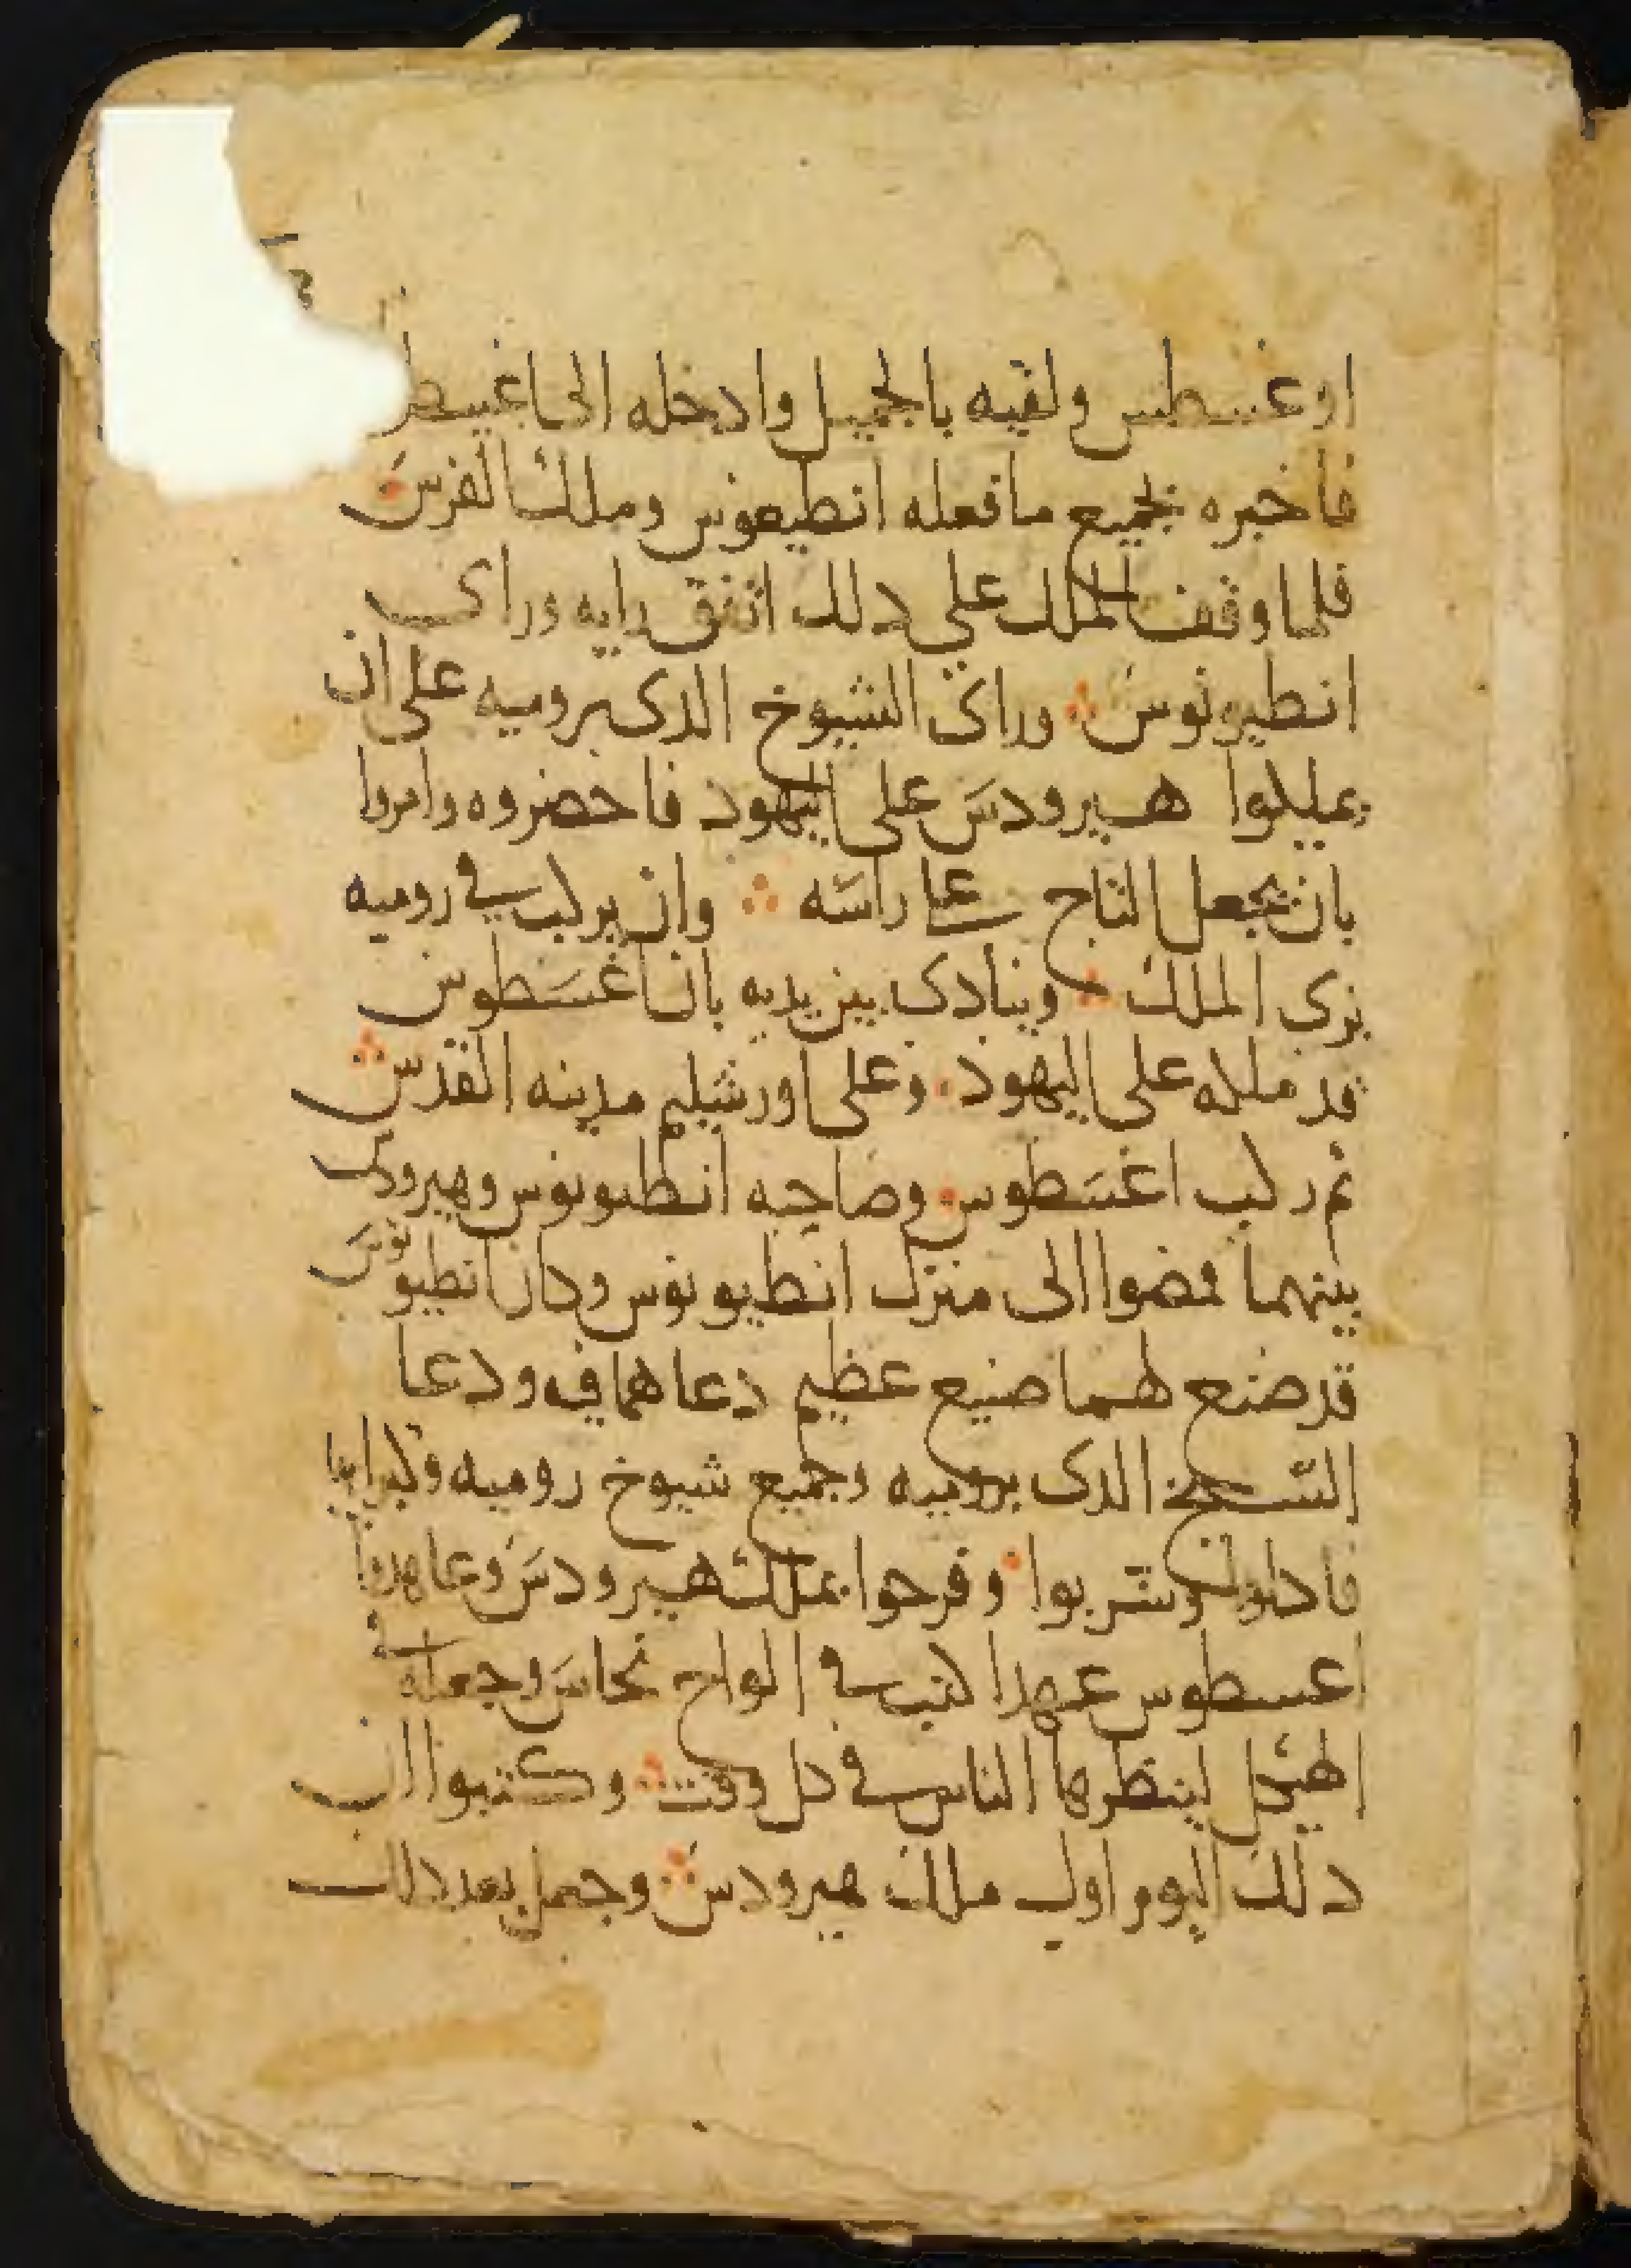 اوغسطس ولقيه بالجميل وادخله الى اغسطس
فاخبره بجميع ما فعله انطيعونس وملك الفرس
فلما وقف الملك على دلك اتفق رايه وراى
انطيونوس وراى الشيوخ الدى بروميه على ان
يملكوا هيرودس على اليهود فاحضروه وامروا
بان يجعل التاج على راسه وان يركب في روميه
بزى الملك وينادى بين يديه بان اغسطوس
قد ملكه على اليهود وعلى اورشليم مدينه القدس
ثم ركب اغسطوس وصاحبه انطيونوس وهيرودس
بينهما فمضوا الى منزل انطيونوس وكان انطيونوس
قد صنع لهما صنيع عظيم دعاهما فيه ودعا
الشيخ الدى بروميه وجميع شيوخ روميه وكبرايها
فاكلوا وشربوا وفرحوا بملك هيرودس وعاهدوا
اغسطوس عهدا كتب في الواح نحاس وجعله في
الهيكل لينظرها الناس في كل وقت وكتبوا ان
دلك اليوم اول ملك هيرودس وجعل بعد دلك